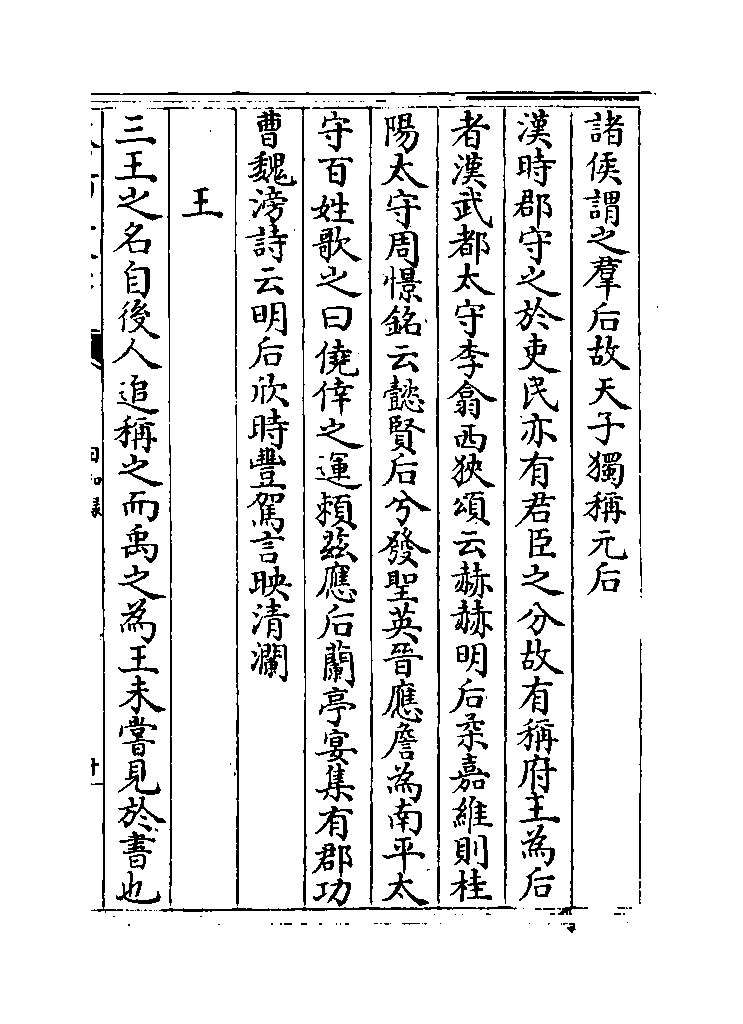 諸侯謂之羣后故天子獨稱元后
漢時郡守之於吏民亦有君臣之分故有稱府主為后
者漢武都太守李翕西狹頌云赫赫明后柔嘉維則桂
陽太守周憬銘云懿賢后兮發聖英晉應詹為南平太
守百姓歌之曰僥倖之運賴茲應后蘭亭宴集有郡功
曹魏滂詩云明后欣時豐駕言映清瀾
王
三王之名自後人追稱之而禹之為王未嘗見於書也
日知錄
十一